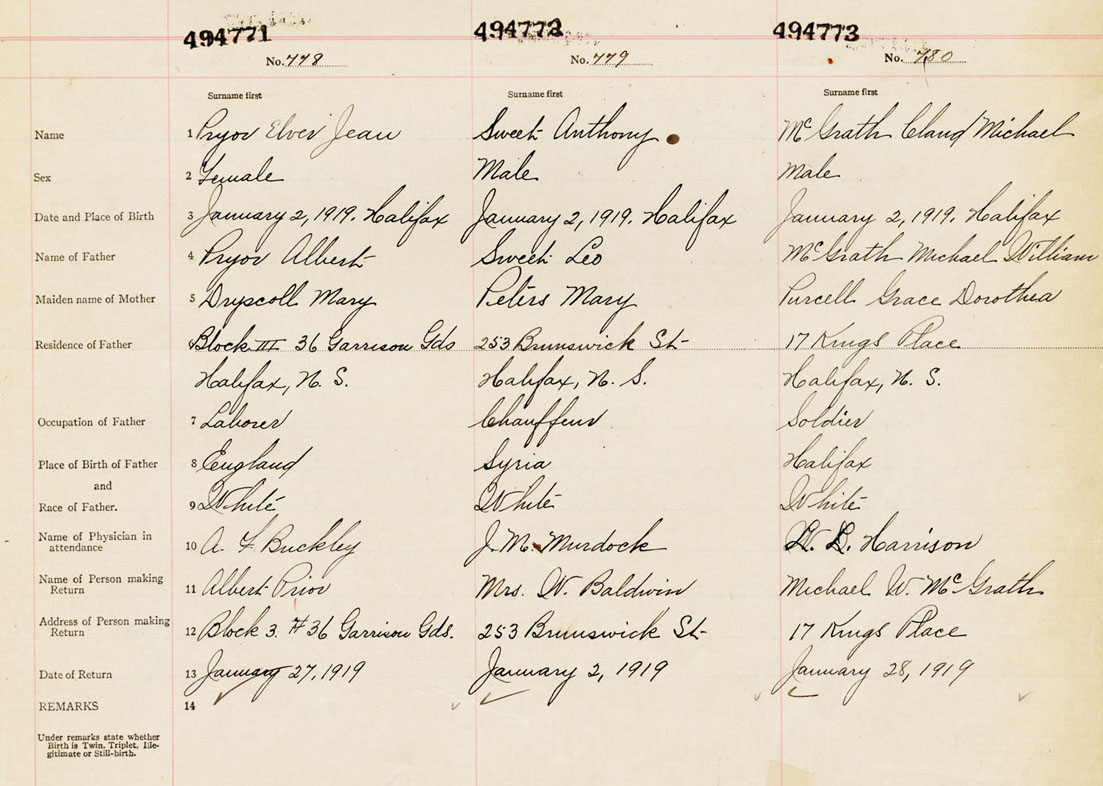 494771 494772 494773
No. 778 No. 779 No. 780
Surname first Surname first Surname first
Name 1 Pryor Elver Jean Sweet Anthony McGrath Claud Michael
Sex 2 Female Male Male
Date and Place of Birth 3 January 2, 1919. Halifax January 2, 1919. Halifax January 2, 1919. Halifax
Name of Father 4 Pryor Albert Sweet Leo McGrath Michael William
Maiden name of Mother 5 Dryscoll Mary Peters Mary Purcell Grace Dorothea
Residence of Father Block III 36 Garrison Gds 253 Brunswick St 17 Kings Place
Halifax, N. S. Halifax, N. S. Halifax, N. S.
Occupation of Father 7 Laborer Chauffeur Soldier
Place of Birth of Father 8 England Syria Halifax
and
Race of Father. 9 White White White
Name of Physician in
attendance 10 A. F Buckley J. M. Murdock D. Harrison
Name of Person making
Return 11 Albert Prior Mrs. W. Baldwin Michael W. McGrath
Address of Person making
Return 12 Block 3. #36 Garrison Gds. 253 Brunswick St 17 Kings Place
Date of Return 13 January 27, 1919 January 2, 1919 January 28, 1919
REMARKS 14
Under remarks state whether
Birth is Twin, Triplet, Ille-
gitimate or Still-birth.